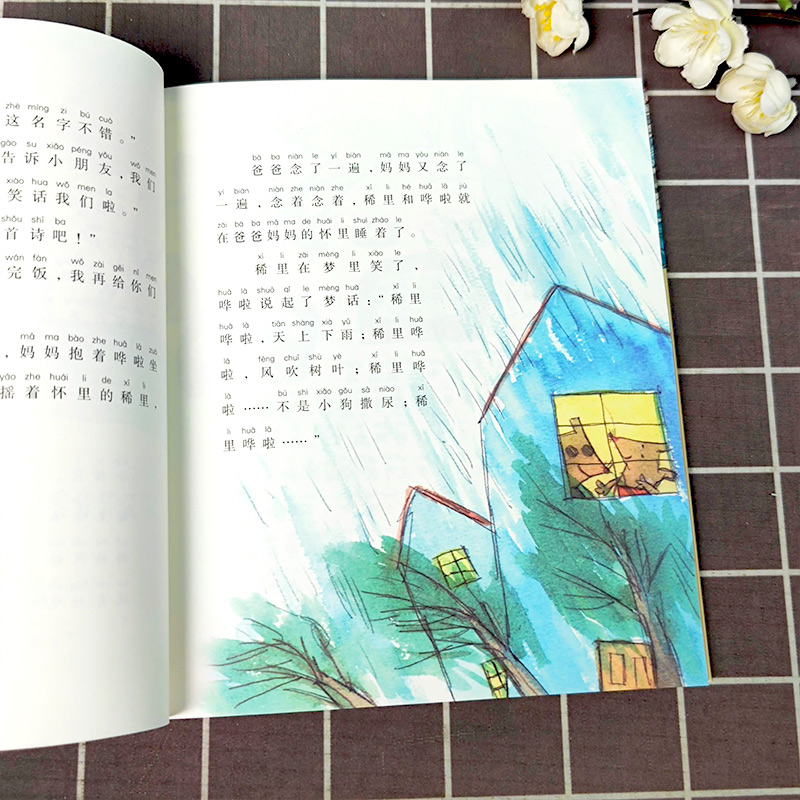 zhè míng zi bú cuò
这名字不错。”
gào su xiǎo péng yǒu wǒ men
告诉小朋友，我们
xiào hua wǒ men la
笑话我们啦。”
shǒu shī ba
首诗吧！”
wán fàn wǒ zài gěi nǐ men
完饭，我再给你们
mā ma bào zhe huā lā zuò
，妈妈抱着哗啦坐
yáo zhe huái li de xī li
摇着怀里的稀里，
bà ba niàn le yí biàn mā ma yòu niàn le
爸爸念了一遍，妈妈又念了
yí biàn niàn zhe niàn zhe xī li hé huā lā jiù
一遍，念着念着，稀里和哗啦就
zài bà ba mā ma de huái li shuì zháo le
在爸爸妈妈的怀里睡着了。
xī li zài mèng li xiào le
稀里在梦里笑了，
huā lā shuō qǐ le mèng huà xī li
哗啦说起了梦话：“稀里
huā lā tiān shàng xià yǔ xī li huā
哗啦，天上下雨；稀里哗
lā fēng chuī shù yè xī li huā
啦，风吹树叶；稀里哗
lā bú shì xiǎo gǒu sā niào xī
啦……不是小狗撒尿；稀
li huā lā
里哗啦……”